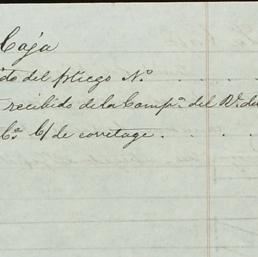 Caja
do del pliego No.
recibido de la Compa. del D. de
Ca. C/ de corretage.